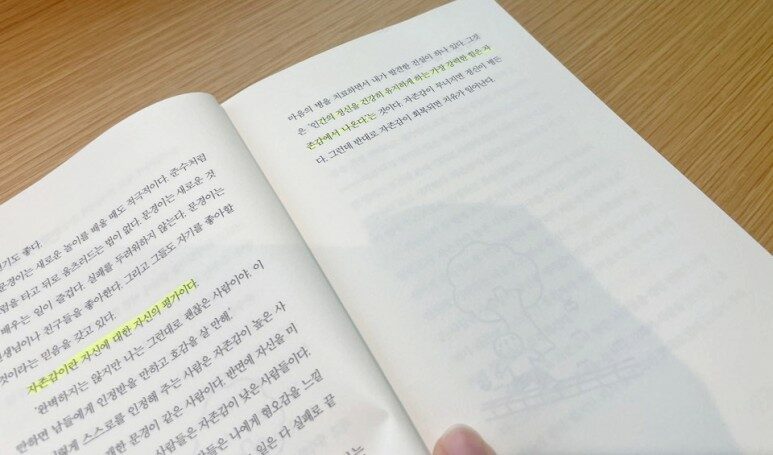 기도 좋다.
문경이는 새로운 놀이를 배울 때도 적극적이다. 준수처럼
럼을 타고 뒤로 움츠러드는 법이 없다. 문경이는 새로운 것
배우는 일이 즐겁다. 실패를 두려워하지 않는다. 문경이는
선생님이나 친구들을 좋아한다. 그리고 그들도 자기를 좋아할
것이라는 믿음을 갖고 있다.
자존감이란 자신에 대한 자신의 평가이다.
'완벽하지는 않지만 나는 그런대로 괜찮은 사람이야. 이
만하면 남들에게 인정받을 만하고 호감을 살 만해.'
렇게 스스로를 인정해 주는 사람은 자존감이 높은 사
문경이 같은 사람이다. 반면에 자신을 미
사람들은 자존감이 낮은 사람들이다.
들은 나에게 혐오감을 느낄
일은 다 실패로 끝
마음의 병을 치료하면서 내가 발견한 진실이 하나 있다. 그것
은 '인간의 정신을 건강히 유지하게 하는 가장 강력한 힘은 자
존감에서 나온다.'는 것이다. 자존감이 무너지면 정신이 병든
다. 그런데 반대로 자존감이 회복되면 치유가 일어난다.